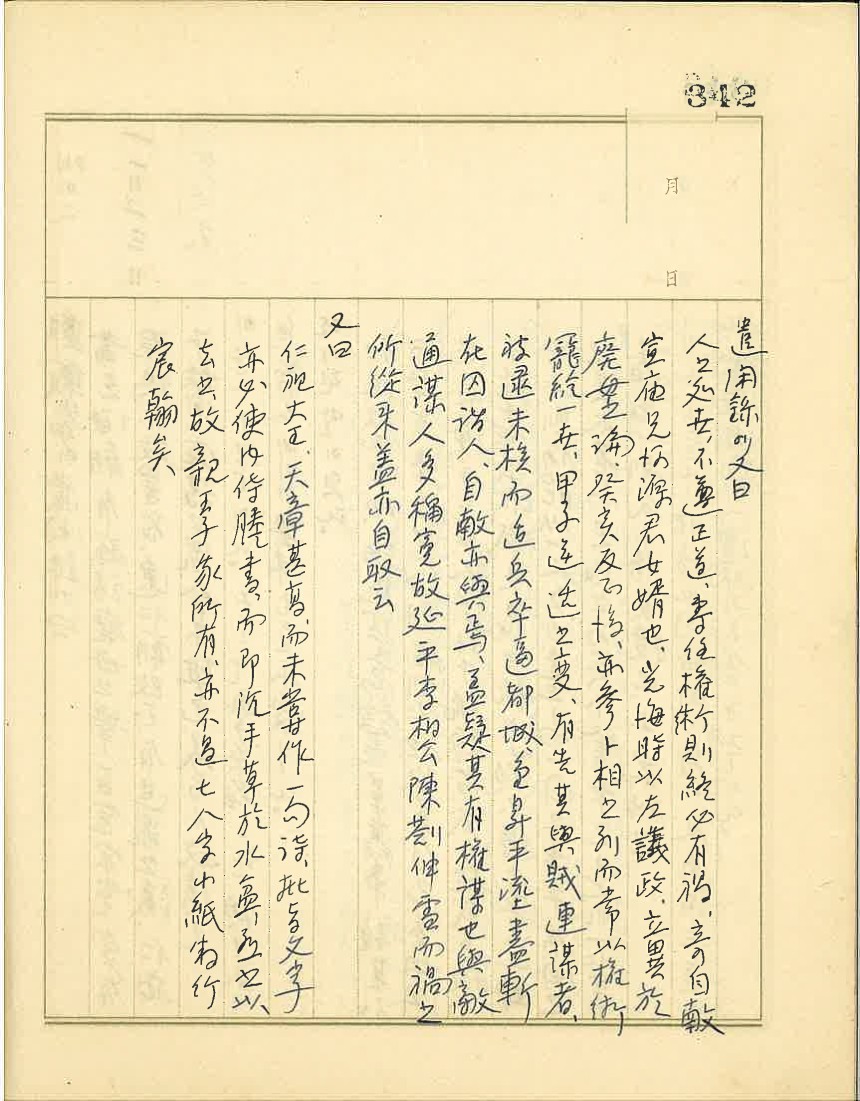 342
月
日
遣閑錄에 又曰
人之處世、不遵正道、專任權術則終必有禍、奇自獻
宣庙兄河源君女婿也、光海時以左議政、立異於
廢母論、癸亥反正後、亦參卜相之列而常以權術
罷統一世、甲子逆适之變、有告其與賊連謀者、
被逮未核而适兵卒逼都城、金昇平瑬盡斬
在囚諸人、自獻亦與焉、盖疑其有權謀也與敵
通謀人多稱寃故延平李相公陳剳伸雪而禍之
所從来盖亦自取云
又曰
仁祖大王、天章甚高、而未嘗作一句詩、批旨文字
亦必使內侍謄書、而即沉手草於水盆、
去之、故親王子家所有、亦不過七八字小紙數行
宸翰矣